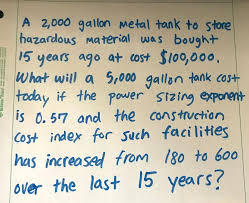 A 2,000 gallon metal tank to store
hazardous material was bought
15 years ago at cost $100,000.
What will a 5,000 gallon tank cost
today if the power sizing exponent
is 0.57 and the construction
cost index for such facilities
has increased from 180 to 600
over the last 15 years?